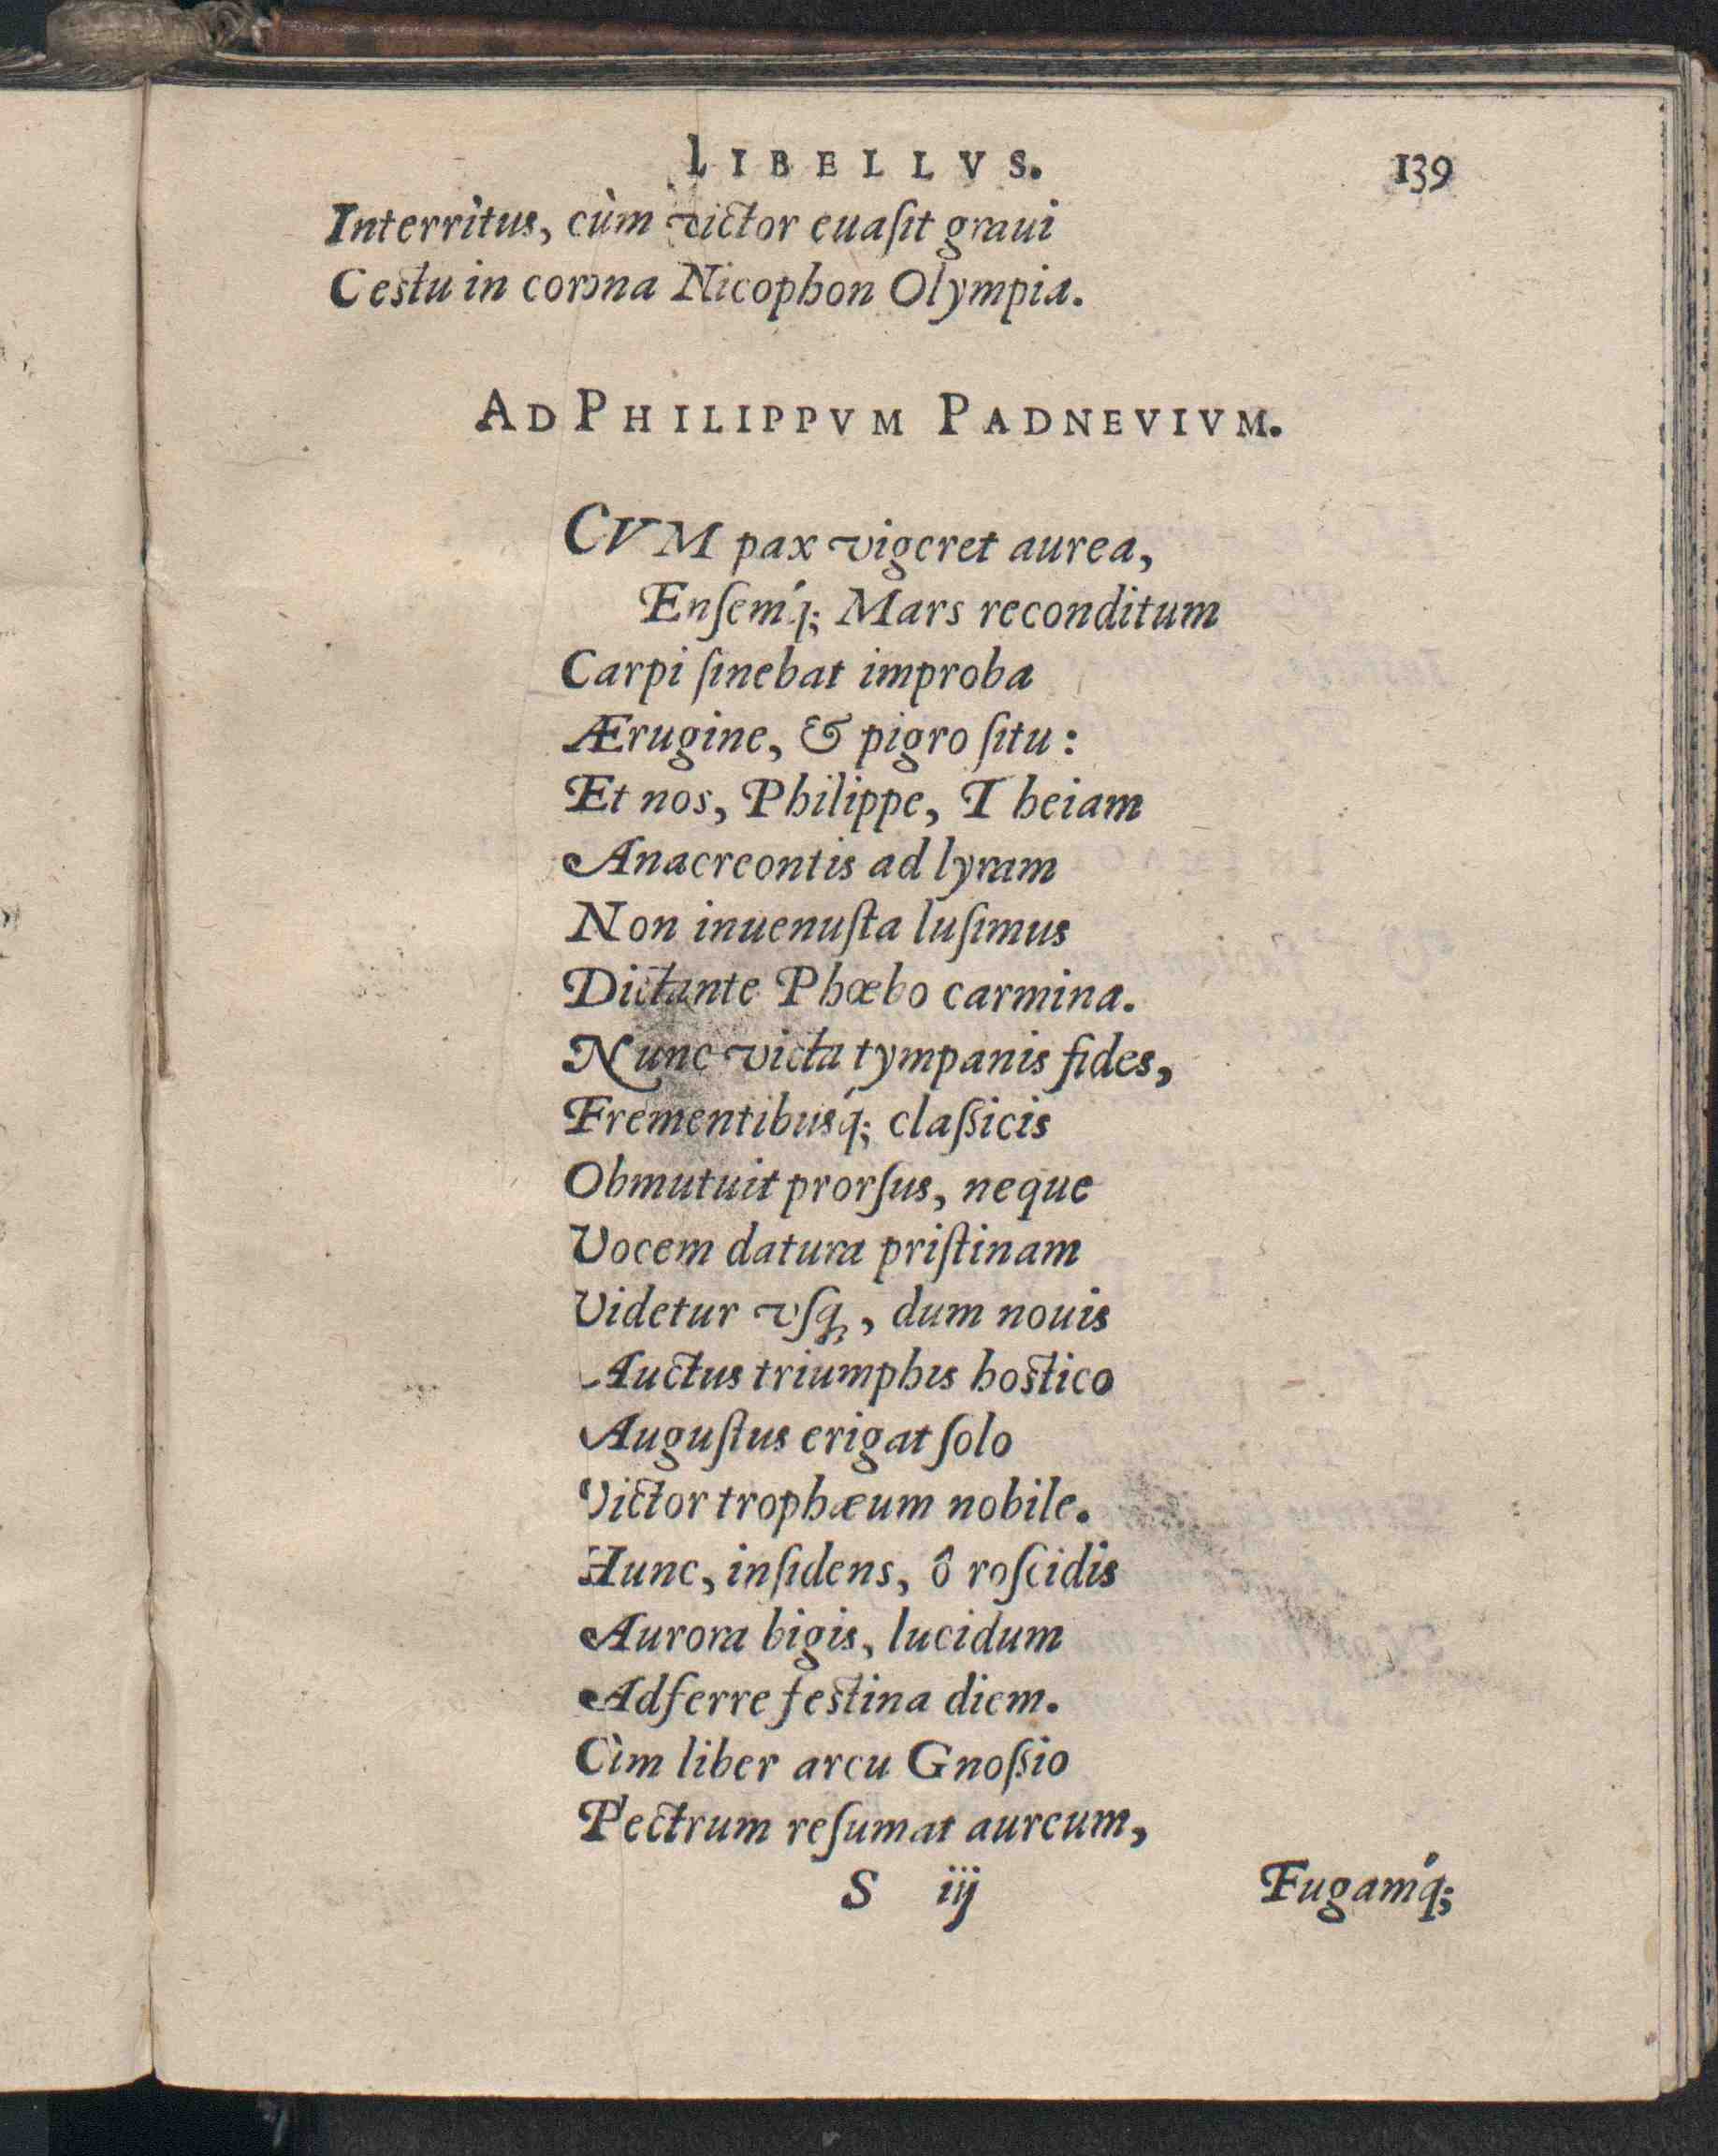 LIBELLVS. 139
Interritus, cùm victor euaſit graui
Cestu in corona Nicophon Olympia.
AD PHILIPPVM PADNEVIVM.
CVM pax vigeret aurea,
Enſemq́; Mars reconditum
Carpi ſinebat improba
Ærugine, & pigro ſitu:
Et nos, Philippe, Theiam
Anacreontis ad lyram
Non inuenuſta luſimus
Dictante Phœbo carmina.
Nunc victa tympanis fides,
Frementibusq́; claſſicis
Obmutuit prorſus, neque
Vocem datura priſtinam
Videtur vſq, dum nouis
Auctus triumphis hostico
Auguſtus erigat ſolo
Victor trophæum nobile.
Hunc, inſidens, ô roſcidis
Aurora bigis, lucidum
Adferre festina diem.
Cùm liber arcu Gnoſſio
Pectrum reſumat aureum,
S iij Fugamq́;